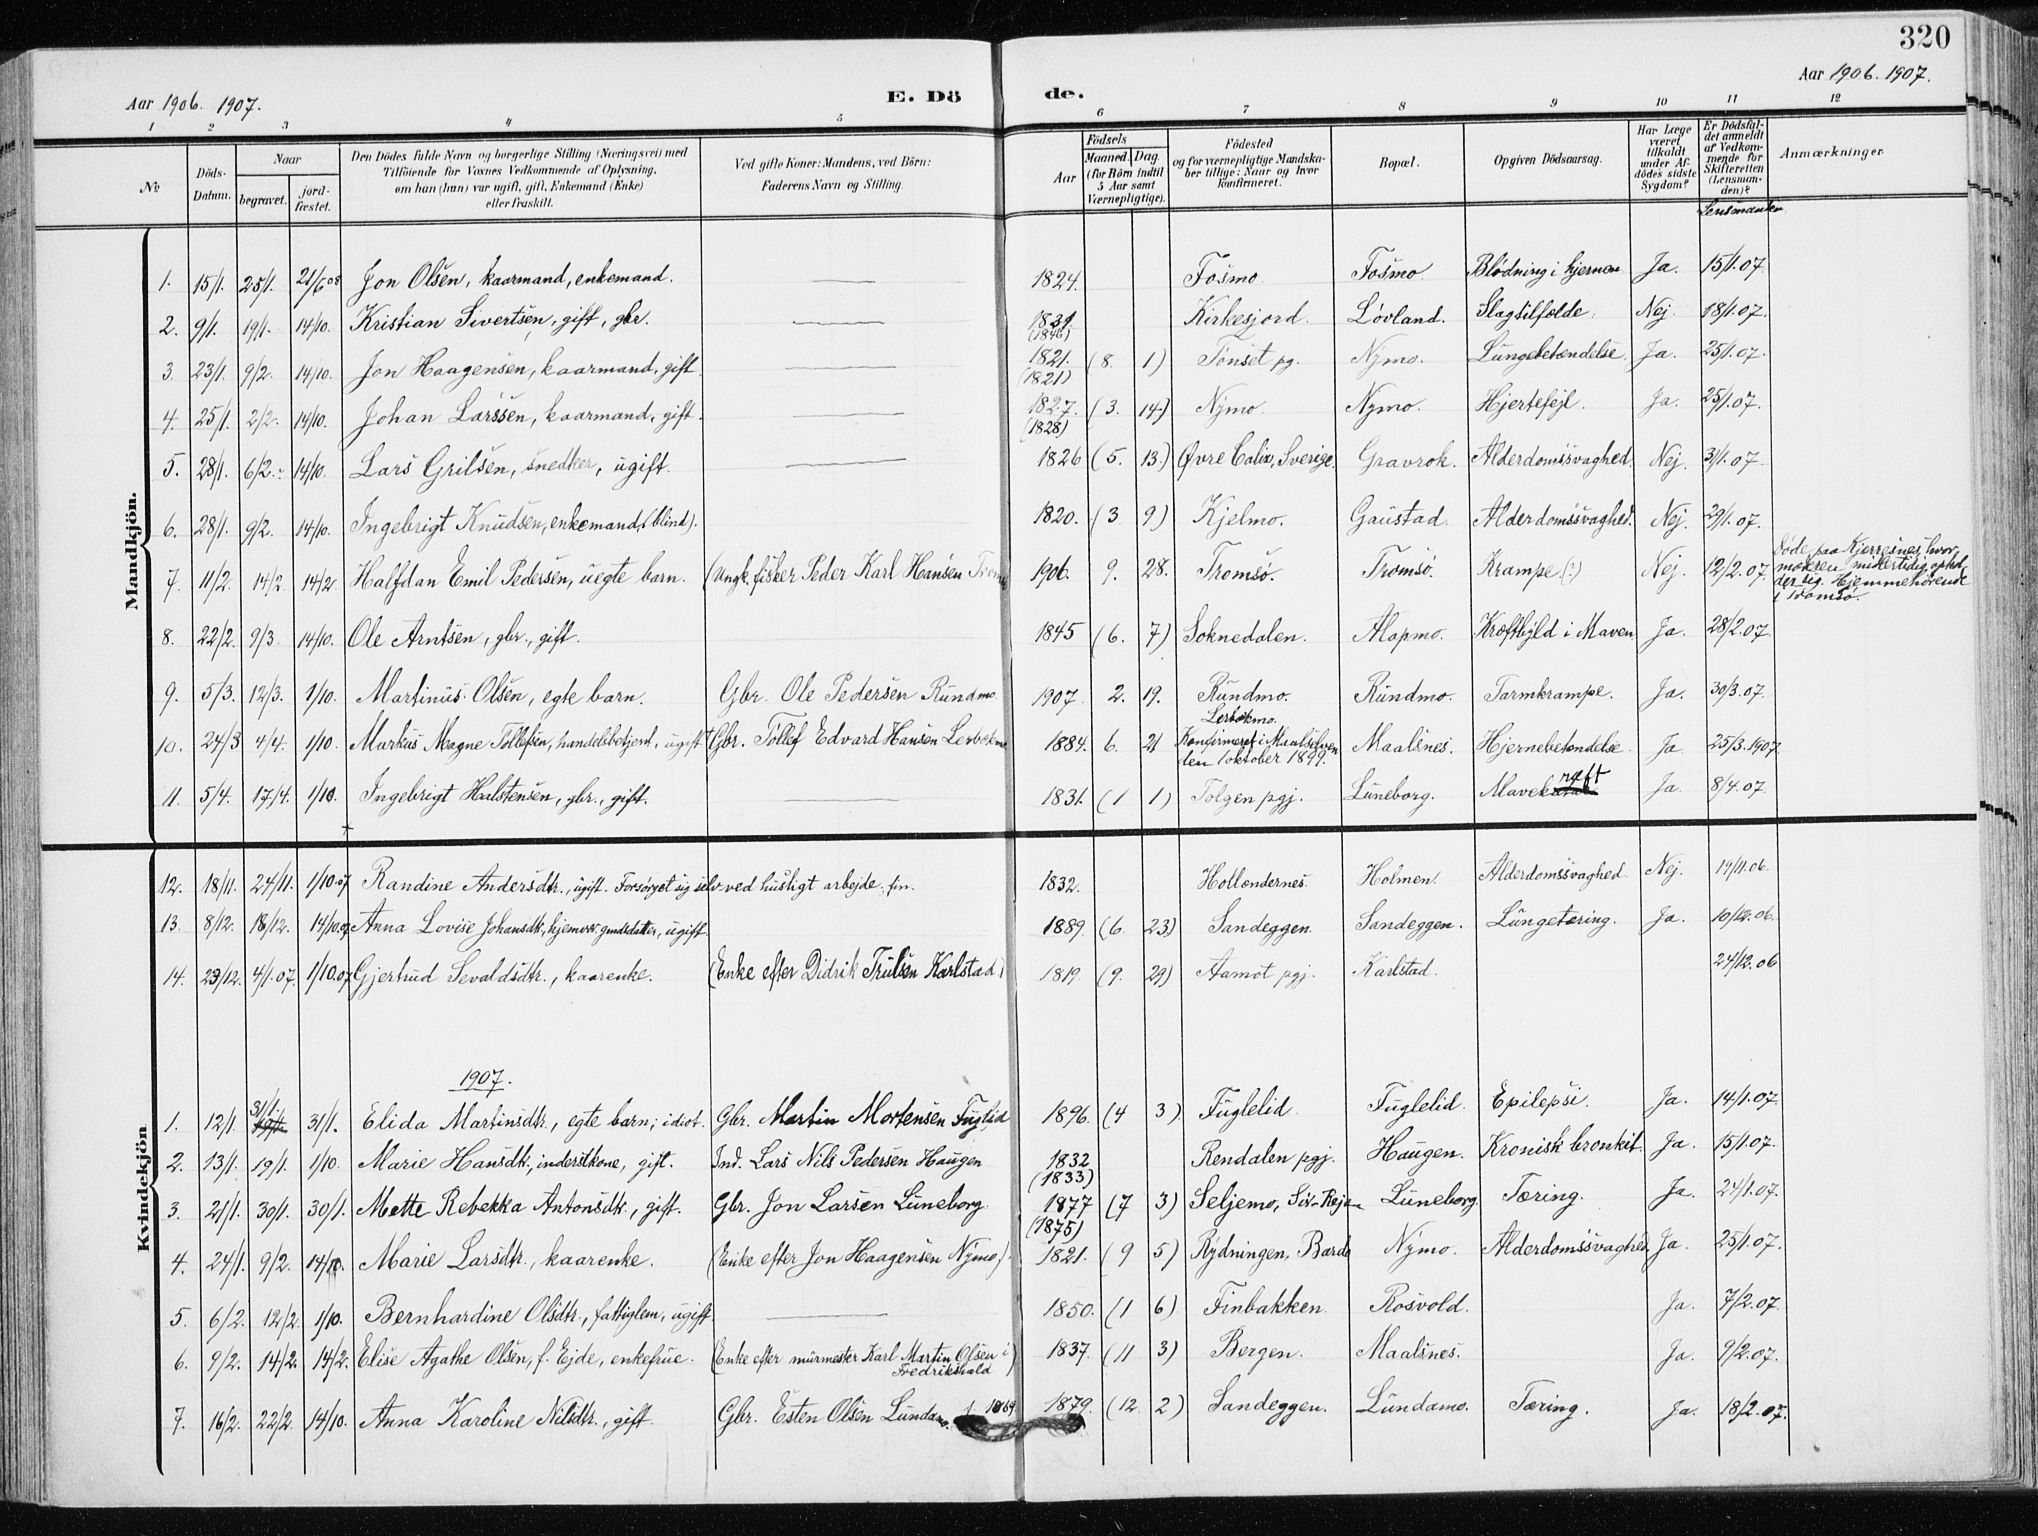 320
Aar 1906. 1907.
E. Dö de.
Aar 1906. 1907.
1 2 3 4 5 6 7 8 9 10 11 12
No
Döds-Datum.
Naar
begravet.
jord-fæstet.
Den Dödes fulde Navn og borgerlige Stilling (Næringsvei) med
Tilföiende for Voxnes Vedkommende af Oplysning,
om han (hun) var ugift, gift, Enkemand (Enke)
eller fraskilt.
Ved gifte Koner: Mandens, ved Börn:
Faderens Navn og Stilling.
Födsels
Aar
Maaned. Dag.
(for Börn indtil
5 Aar samt
Værnepligtige).
Födested
og for værnepligtige Mandska-
ber tillige: Naar og hvor
konfirmeret.
Bopæl.
Opgiven Dödsaarsag.
Har Læge
været
tilkaldt
under Af-
dödes sidste
Sygdom?
Er Dödsfal-
det anmeldt
af Vedkom-
mende for
Skifteretten
(Lensman-
den)?
Anmærkninger.
Mandkjön.
1. 15/1. 25/1. 21/6 08 Jon Olsen, kaarmand, enkemand. 1824. Fosmo. Fosmo. Blödning i hjernen Ja. 15/1.07.
2. 9/1. 19/1. 14/10. Kristian Sivertsen, gift, gbr. 1831. (1846) Kirkesjord. Lövland. Slagtilfælde. Nej. 18/1.07.
3. 23/1. 9/2. 14/10. Jon Haagensen, kaarmand, gift. 1821. (1821) (8. 1) Tönset pg. Nymo. Lungebetændelse. Ja. 25/1.07.
4. 25/1. 2/2. 14/10. Johan Larssen, kaarmand, gift. 1827. (1828) (3. 14.) Nymo. Nymo. Hjertefejl. Ja. 25/1.07.
5. 28/1. 6/2. 14/10. Lars Grilsen, snedker, ugift. 1826 (5. 13.) Øvre Calix, Sverige. Gravrok. Alderdomssvaghed. Nej. 3/1.07
6. 28/1. 9/2. 14/10. Ingebrigt Knudsen, enkemand, (blind). 1820. (3 9) Kjelmo. Gaustad. Alderdomssvaghed. Nej. 29/1.07.
7. 11/2. 14/2. 14/2 Halfdan Emil Pedersen, uegte barn. (Ungk. fisker Peder Karl Hansen 1906. 9. 28. Tromsö. Tromsö. Krampe (:) Nej. 12/2.07. Döde paa Kjerresnes, hvor
moderen midlertidig ophol-
der sig. Hjemmehörende
i Tromsö.
8. 22/2. 9/3. 14/10. Ole Arntsen, gbr., gift. 1845 (6. 7) Soknedalen. Alapmo. Kræftbyld i Maven Ja. 28/2.07.
9. 5/3. 12/3. 1/10. Martinus Olsen, egte barn. Gbr. Ole Pedersen Rundmo. 1907. 2. 19. Rundmo. Rundmo. Tarmkrampe. Ja. 30/3.07.
10. 24/3 4/4. 1/10. Markus Magne Tollefsen, handelsbetjent, ugift Gbr. Tollef Edvard Hansen Lerbekmo 1884. 6. 21 Lerbekmo.
Konfirmeret i Maalselven
den 1 oktober 1899. Maalsnes. Hjernebetændelse Ja 25/3.1907
11. 5/4. 17/4. 1/10. Ingebrigt Halstensen, gbr., gift. 1831. (1 1) Tolgen pgj. Luneborg. Mavekræft Ja. 8/4.07.
Kvindekjön
12. 18/11. 24/11. 1/10.07 Randine Andersdtr., ugift. Forsørget sig selv ved husligt arbejde. 1832. Hollendernes. Holmen. Alderdomssvaghed. Nej. 19/11.06.
13. 8/12. 18/12. 14/10.07 Anna Lovise Johansdtr., ugift. 1889. (6. 23) Sandeggen. Sandeggen. Lungetæring. Ja. 10/12.06.
14. 23/12. 4/1.07. 1/10.07 Gjertrud Sevaldsdtr., kaarenke. (Enke efter Didrik Trulsen Karlstad) 1819. (9. 29) Aamot pgj. Karlstad. 24/12.06
1907.
1. 12/1. 31/1. 31/1. Elida Martinsdtr., egte barn; idiot. Gbr. Martin Mortensen Fuglelid 1896. (4 3) Fuglelid. Fuglelid. Epilepsi. Ja. 14/1.07.
2. 13/1. 19/1. 1/10. Marie Hansdtr., inderstkone, gift. Ind. Lars Nils Pedersen Haugen 1832 (1833) Rendalen pgj. Haugen. Kronisk bronkit. Ja. 15/1.07.
3. 21/1. 30/1. 30/1. Mette Rebekka Antonsdtr., gift. Gbr. Jon Larsen Luneborg. 1877 (1875) (7 3) Seljemo, Luneborg. Tæring. Ja. 24/1.07.
4. 24/1. 9/2. 14/10. Marie Larsdtr., kaarenke. (Enke efter Jon Haagensen Nymo.) 1821. (9 5) Rydningen, Bardo Nymo. Alderdomssvaghed Ja. 25/1.07.
5. 6/2. 12/2. 1/10. Bernhardine Olsdtr., fattiglem, ugift. 1850. (1 6) Finbakken. Rosvold. Ja. 7/2.07.
6. 9/2. 14/2. 14/2. Elise Agathe Olsen, f. Ejde, enkefrue. (Enke efter murmester Karl Martin Olsen i
Fredrikshald) 1837. (11 3) Bergen. Maalsnes. Ja. 9/2.07.
7. 16/2. 22/2. 14/10. Anna Karoline Nilsdtr., gift. Gbr. Esten Olsen Lundamo. f. 1869 1879. (12. 2) Sandeggen. Lundamo. Tæring. Ja. 18/2.07.